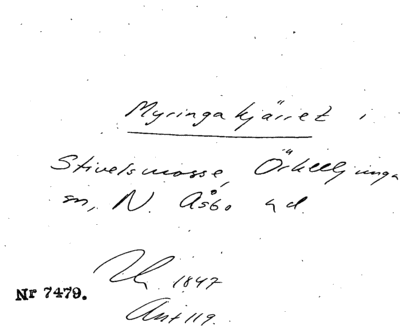 Myringakjärret i
Stivelsmosse, Örkelljunga
sn, N. Åsbo hd.
1847
Nr 7479.
Ant 119.